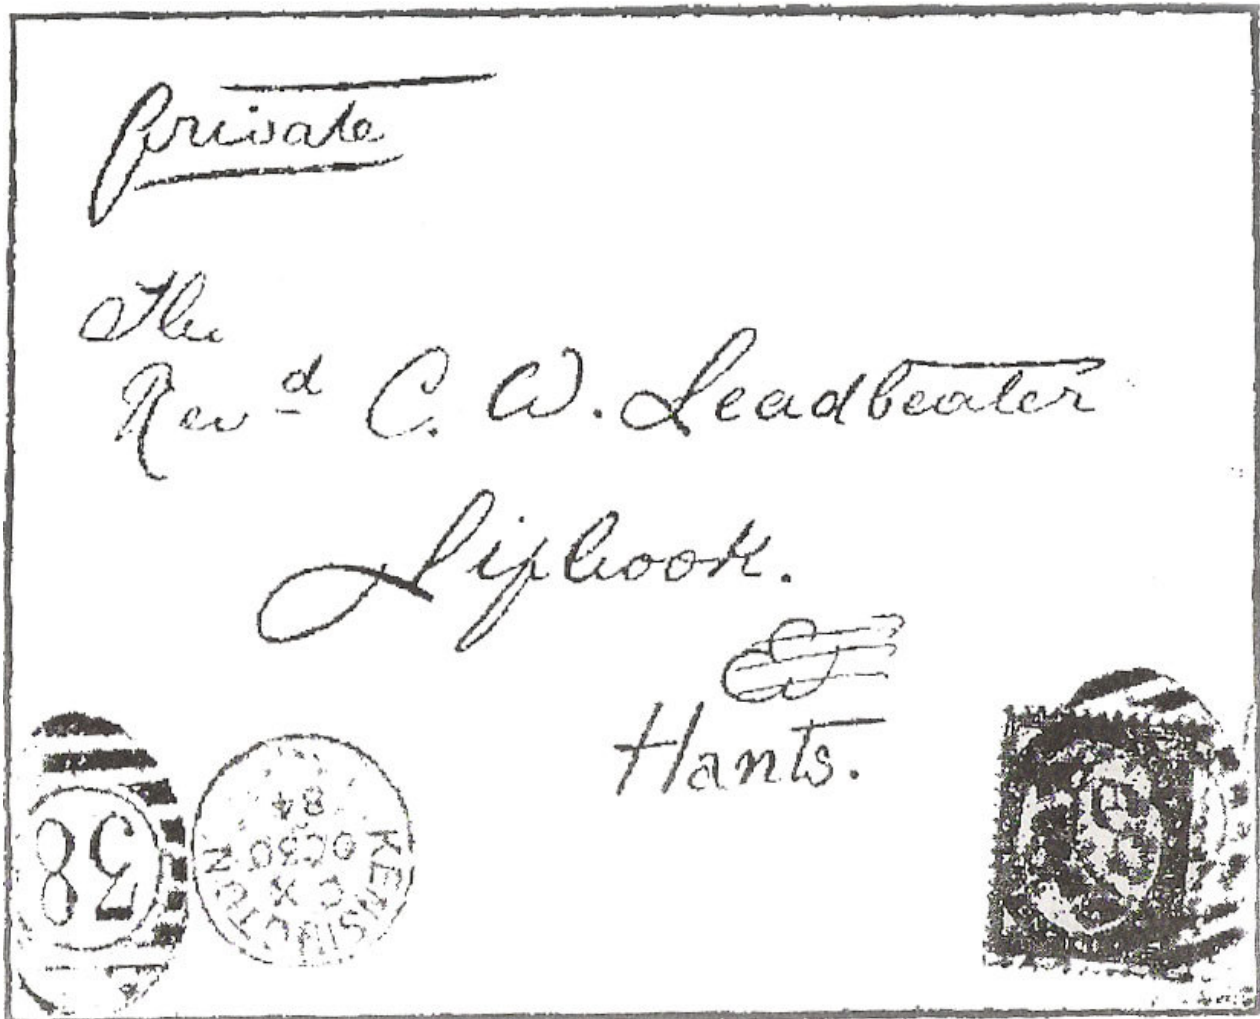 Private
The
Revd C. W. Leadbeater
Liphook.
Hants.
38
KENSINGTON
C X
OC 30
84